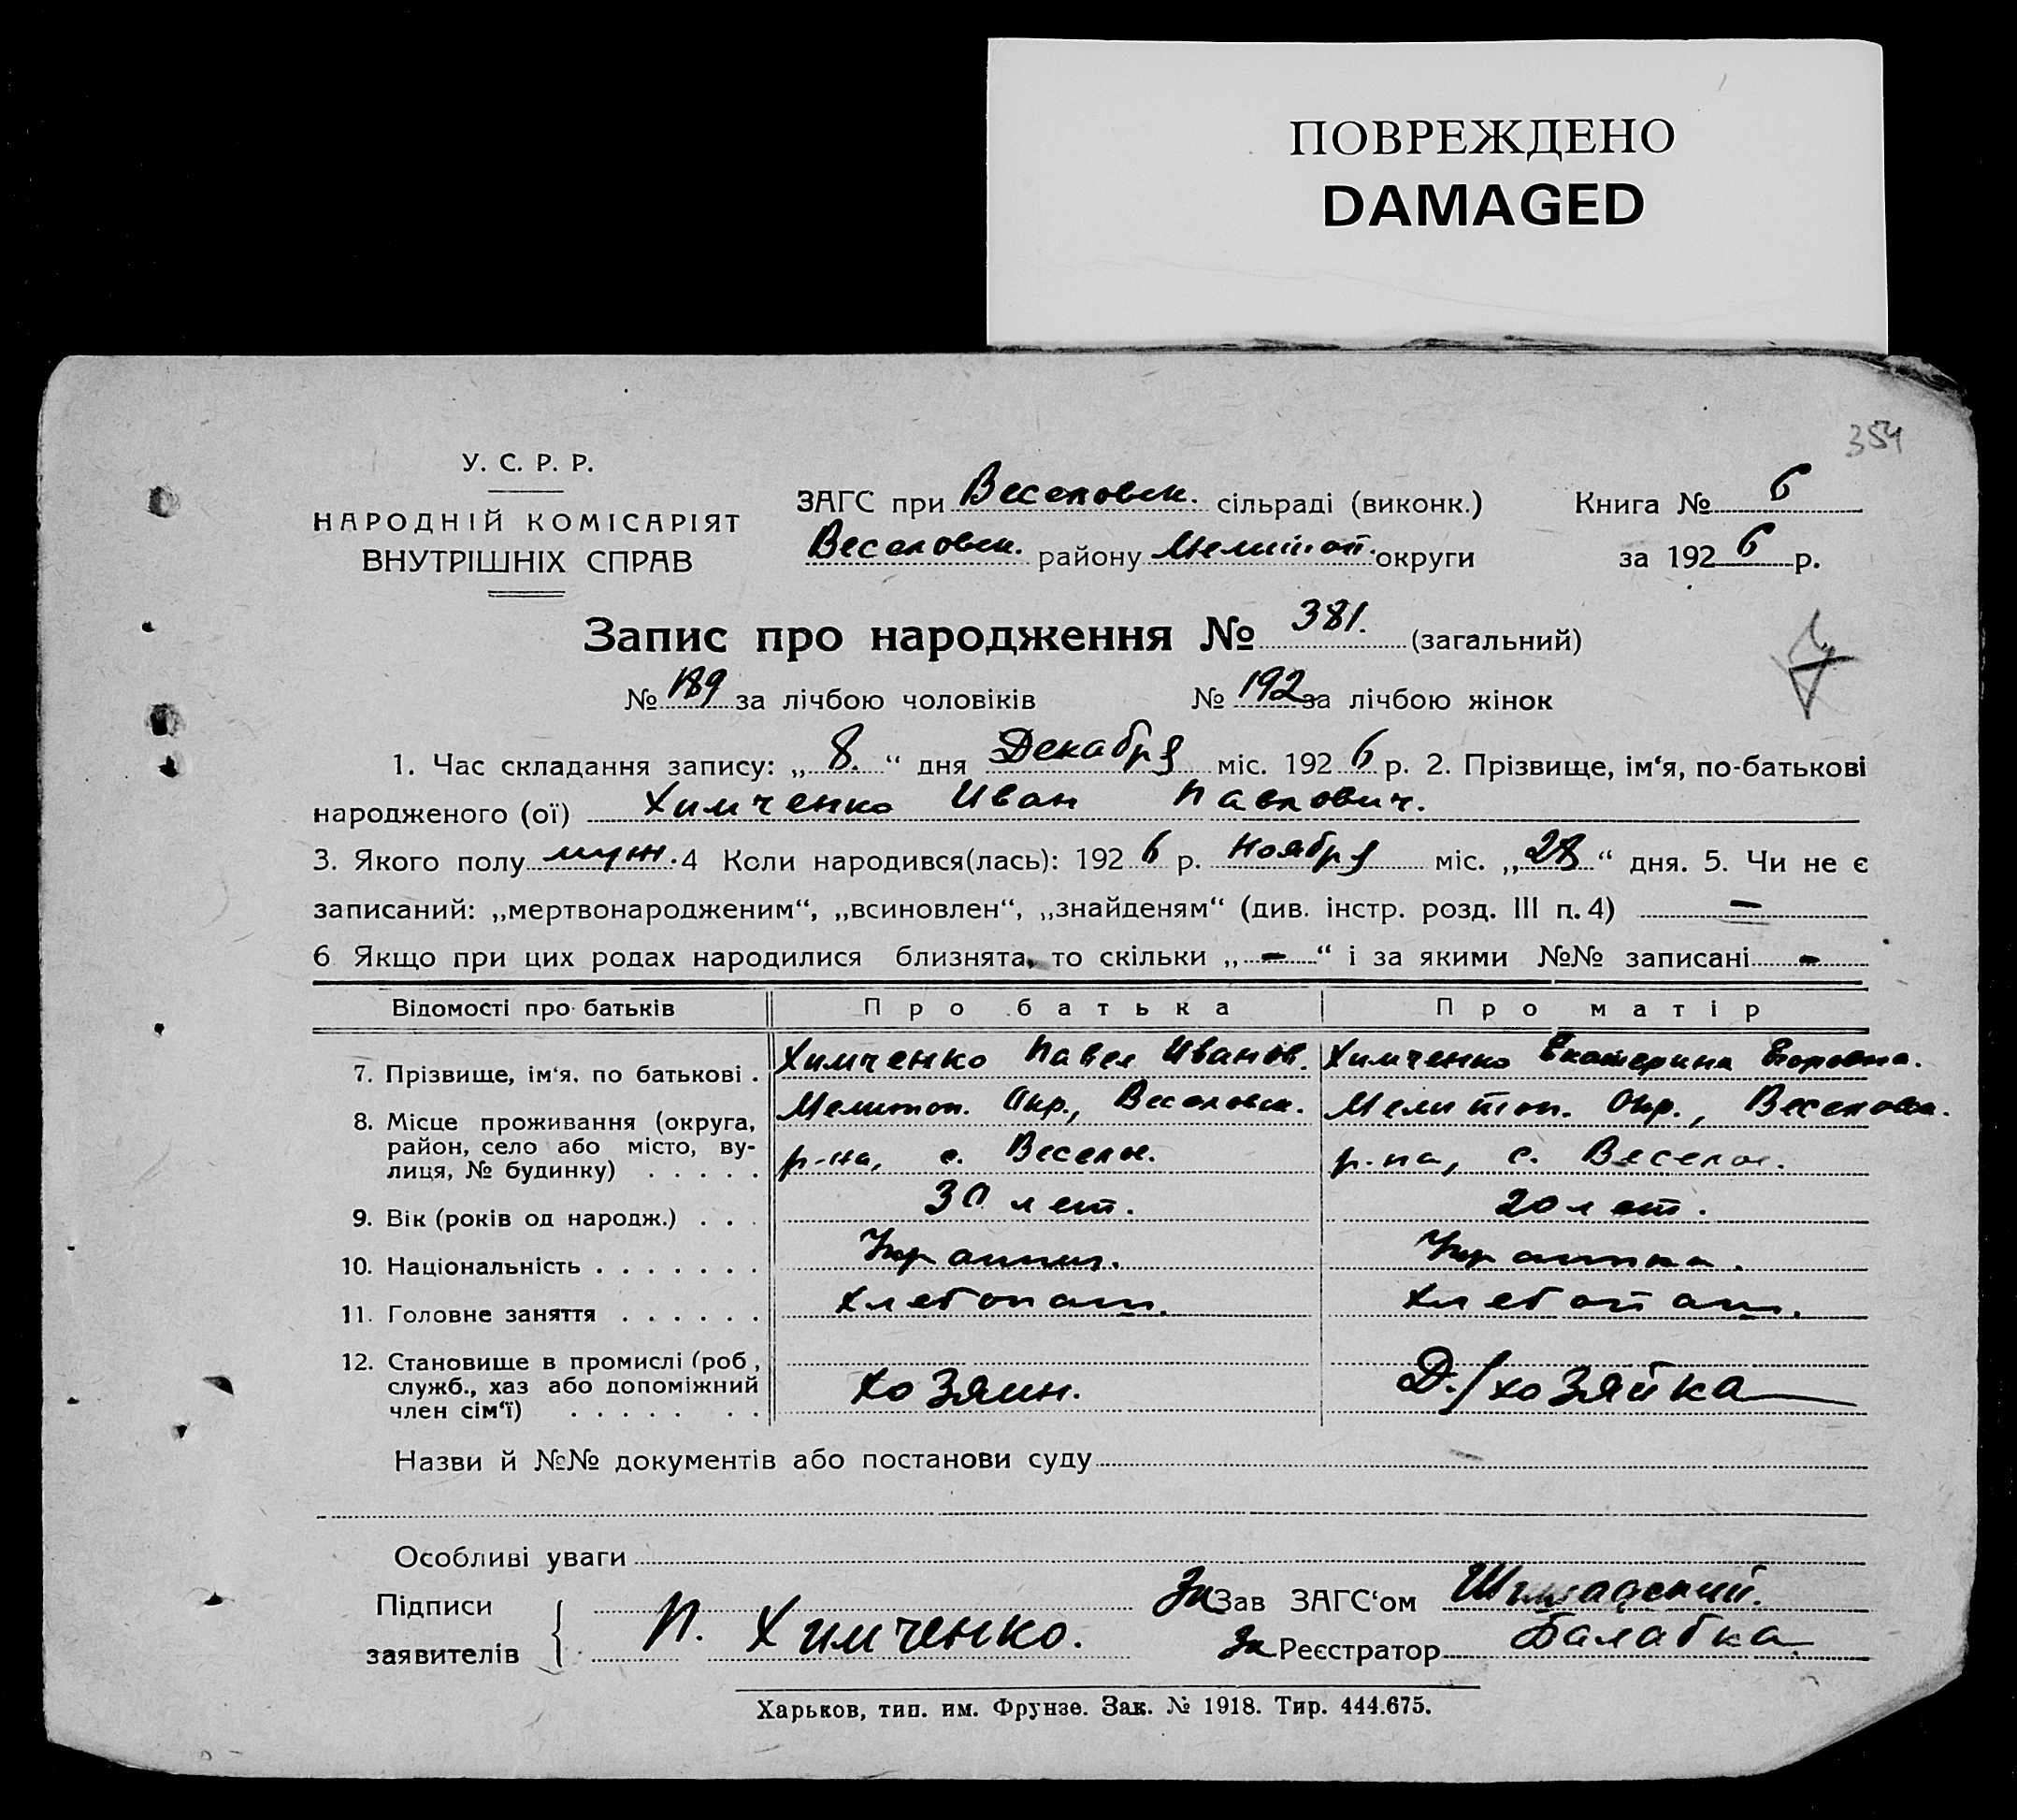 ПОВРЕЖДЕНО
DAMAGED
354
У. С. Р. Р.
НАРОДНІЙ КОМІСАРІЯТ
ВНУТРІШНІХ СПРАВ
ЗАГС при Веселовск. сільраді (виконк.)
Веселовск. району Мелитоп. округи
Книга № 6
за 1926 р.
Запис про народження № 381. (загальний)
№ 189 за лічбою чоловіків № 192 за лічбою жінок
1. Час складання запису: „8.“ дня Декабря міс. 1926 р. 2. Прізвище, ім‘я, по-батькові
народженого (ої) Химченко Иван Павлович.
3. Якого полу муж. 4 Коли народився(лась): 1926 р. Ноября міс. „28“ дня. 5. Чи не є
записаний: „мертвонародженим“, „всиновлен“, „знайденям“ (див. інстр. розд. III п. 4) —
6 Якщо при цих родах народилися близнята, то скільки „-“ і за якими №№ записані -
Відомості про батьків Про батька Про матір
7. Прізвище, ім‘я, по батькові . Химченко Павел Иванов. Химченко Екатерина Егоровна.
8. Місце проживання (округа, Мелитоп. Окр., Веселовск. Мелитоп. Окр., Веселовск.
район, село або місто, ву- р-на, с. Веселое. р-на, с. Веселое.
лиця, № будинку) . . . . .
9. Вік (років од народж.) . . . 30 лет. 20 лет.
10. Національність . . . . . . . Украинец. Украинка.
11. Головне заняття . . . . . . Хлебопаш. Хлебопаш.
12. Становище в промислі (роб,
служб., хаз або допоміжний хозяин. Д./хозяйка
член сім‘ї) . . . . . . .
Назви й №№ документів або постанови суду
Особливі уваги
Підписи
заявителів П. Химченко.
За Зав ЗАГС‘ом
За Реєстратор Балабка
Харьков, тип. им. Фрунзе. Зак. № 1918. Тир. 444.675.